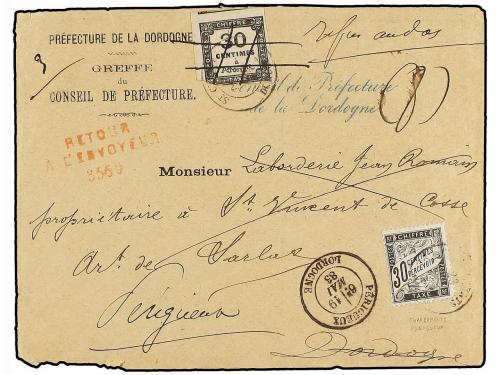 PRÉFECTURE DE LA DORDOGNE
GREFFE
du
CONSEIL DE PRÉFECTURE.
CHIFFRE
30
CENTIMES
à
PERCEVOIR
Refusé au dos
Conseil de Préfecture
de la Dordogne
RETOUR
A L'ENVOYEUR
3560
Monsieur Laborderie Jean Romain
propriétaire à St Vincent de Cosse
Art. de Sarlat
Périgueux
Dordogne
PÉRIGUEUX
19
MAI
83
DORDOGNE
CHIFFRE
30 CENTIMES
À PERCEVOIR
TAXE